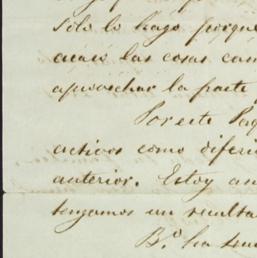 Sólo lo hago porque
acaso las cosas cam
aprovechar la parte
Por este Paq
activos como diferi
anterior. Estoy an
tengamos un resulta
B.º ha